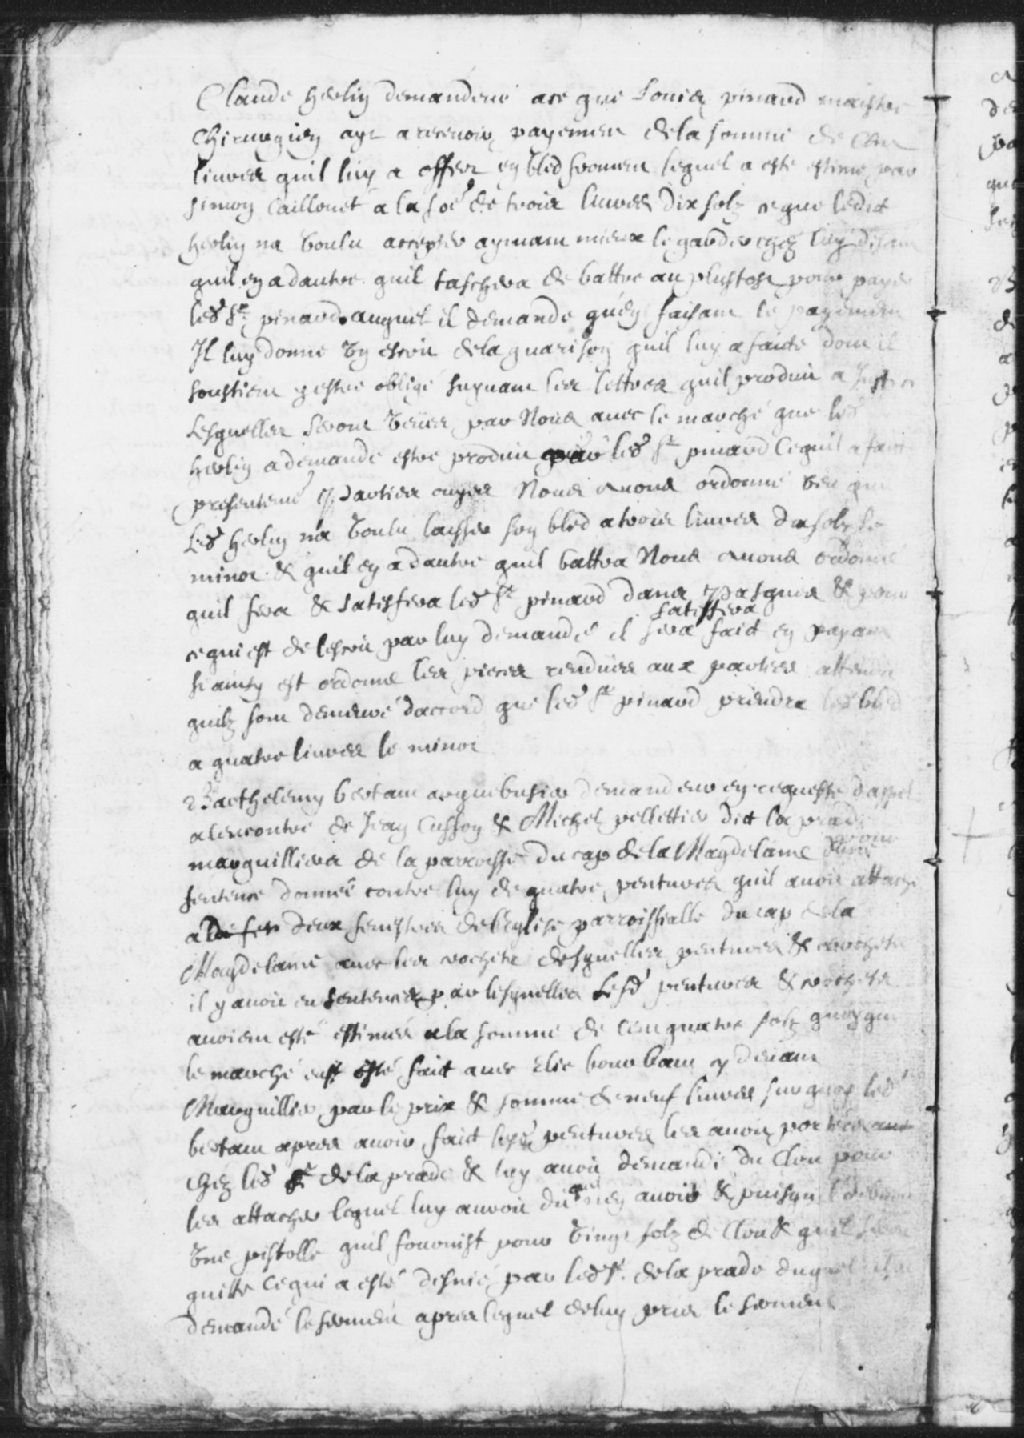 Claude herlin demanderie a ce que Louis pinard maistre
Chirurgien ayt a recevoir payement de la somme de Cent
livres quil luy a offert en bled froment lequel a este estime par
simon Caillouet a la soe de trois livres dix solz ce que ledict
herlin na voulu accepter aymant mieux le garder chez luy disant
quil en a dautre quil taschera de battre au plustost pour payer
led Sr pinard auquel il demande quen faisant le payement
Il luy donne un escrit de la guarison quil luy a faicte dont il
soustient y estre obligé suyvant les lettres quil produit a
Lesquelles seront veues par Nous avec le marché que led
herlin a demandé estre produit par led Sr pinard Cequil a fait
presentement Parties ouyes Nous avons ordonné veu que
Led herlin na voulu laisser son bled a trois livres dix solz le
minot & quil en a dautre quil battra Nous avons ordonné
quil fera & satisfera led Sr pinard dans Pasques & pour
satisfera
ce qui est de lescrit par luy demandé il sera faict en payant
si ainsy est ordonné les pieces rendues aux parties attendu
quilz sont demeuré daccord que led Sr pinard prendra led bled
a quatre livres le minot
Barthelemy bertain arquebusier demandeur en requeste dappel
alencontre de Jean Cusson & Michel pellettier dit la prade
marguilliers de la parroisse du cap de la Magdelaine dune
sentence donnée contre luy de quatre pentures quil avoit attaché
a deux fenistres de leglise parroissialle du cap de la
Magdelaine avec les crochets desquelles pentures & crochets
il y avoit eu sentence par lesquelles lesd pentures & crochets
avoient esté estimés a la somme de Cent quatre solz quoyque
le marché eust esté faict avec Elie bourbaut cy devant
Marguillier par le prix & somme de neuf livres sur quoy led
bertain apres avoir faict lesd pentures les avoit portées
chez led Sr de la prade & luy avoit demandé du Clou pour
les attacher lequel luy auroit dit nen avoir & puisquil
une pistolle quil fournist pour vingt solz de Clou & quil seroit
quitte Cequi a esté desnié par led Sr de la prade duquel
demandé le serment apres lequel de luy pris le serment